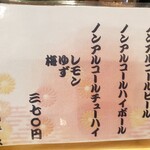 ノンアルコールビール
ノンアルコールハイボール
ノンアルコールチューハイ
レモン
ゆず
梅
三七〇円